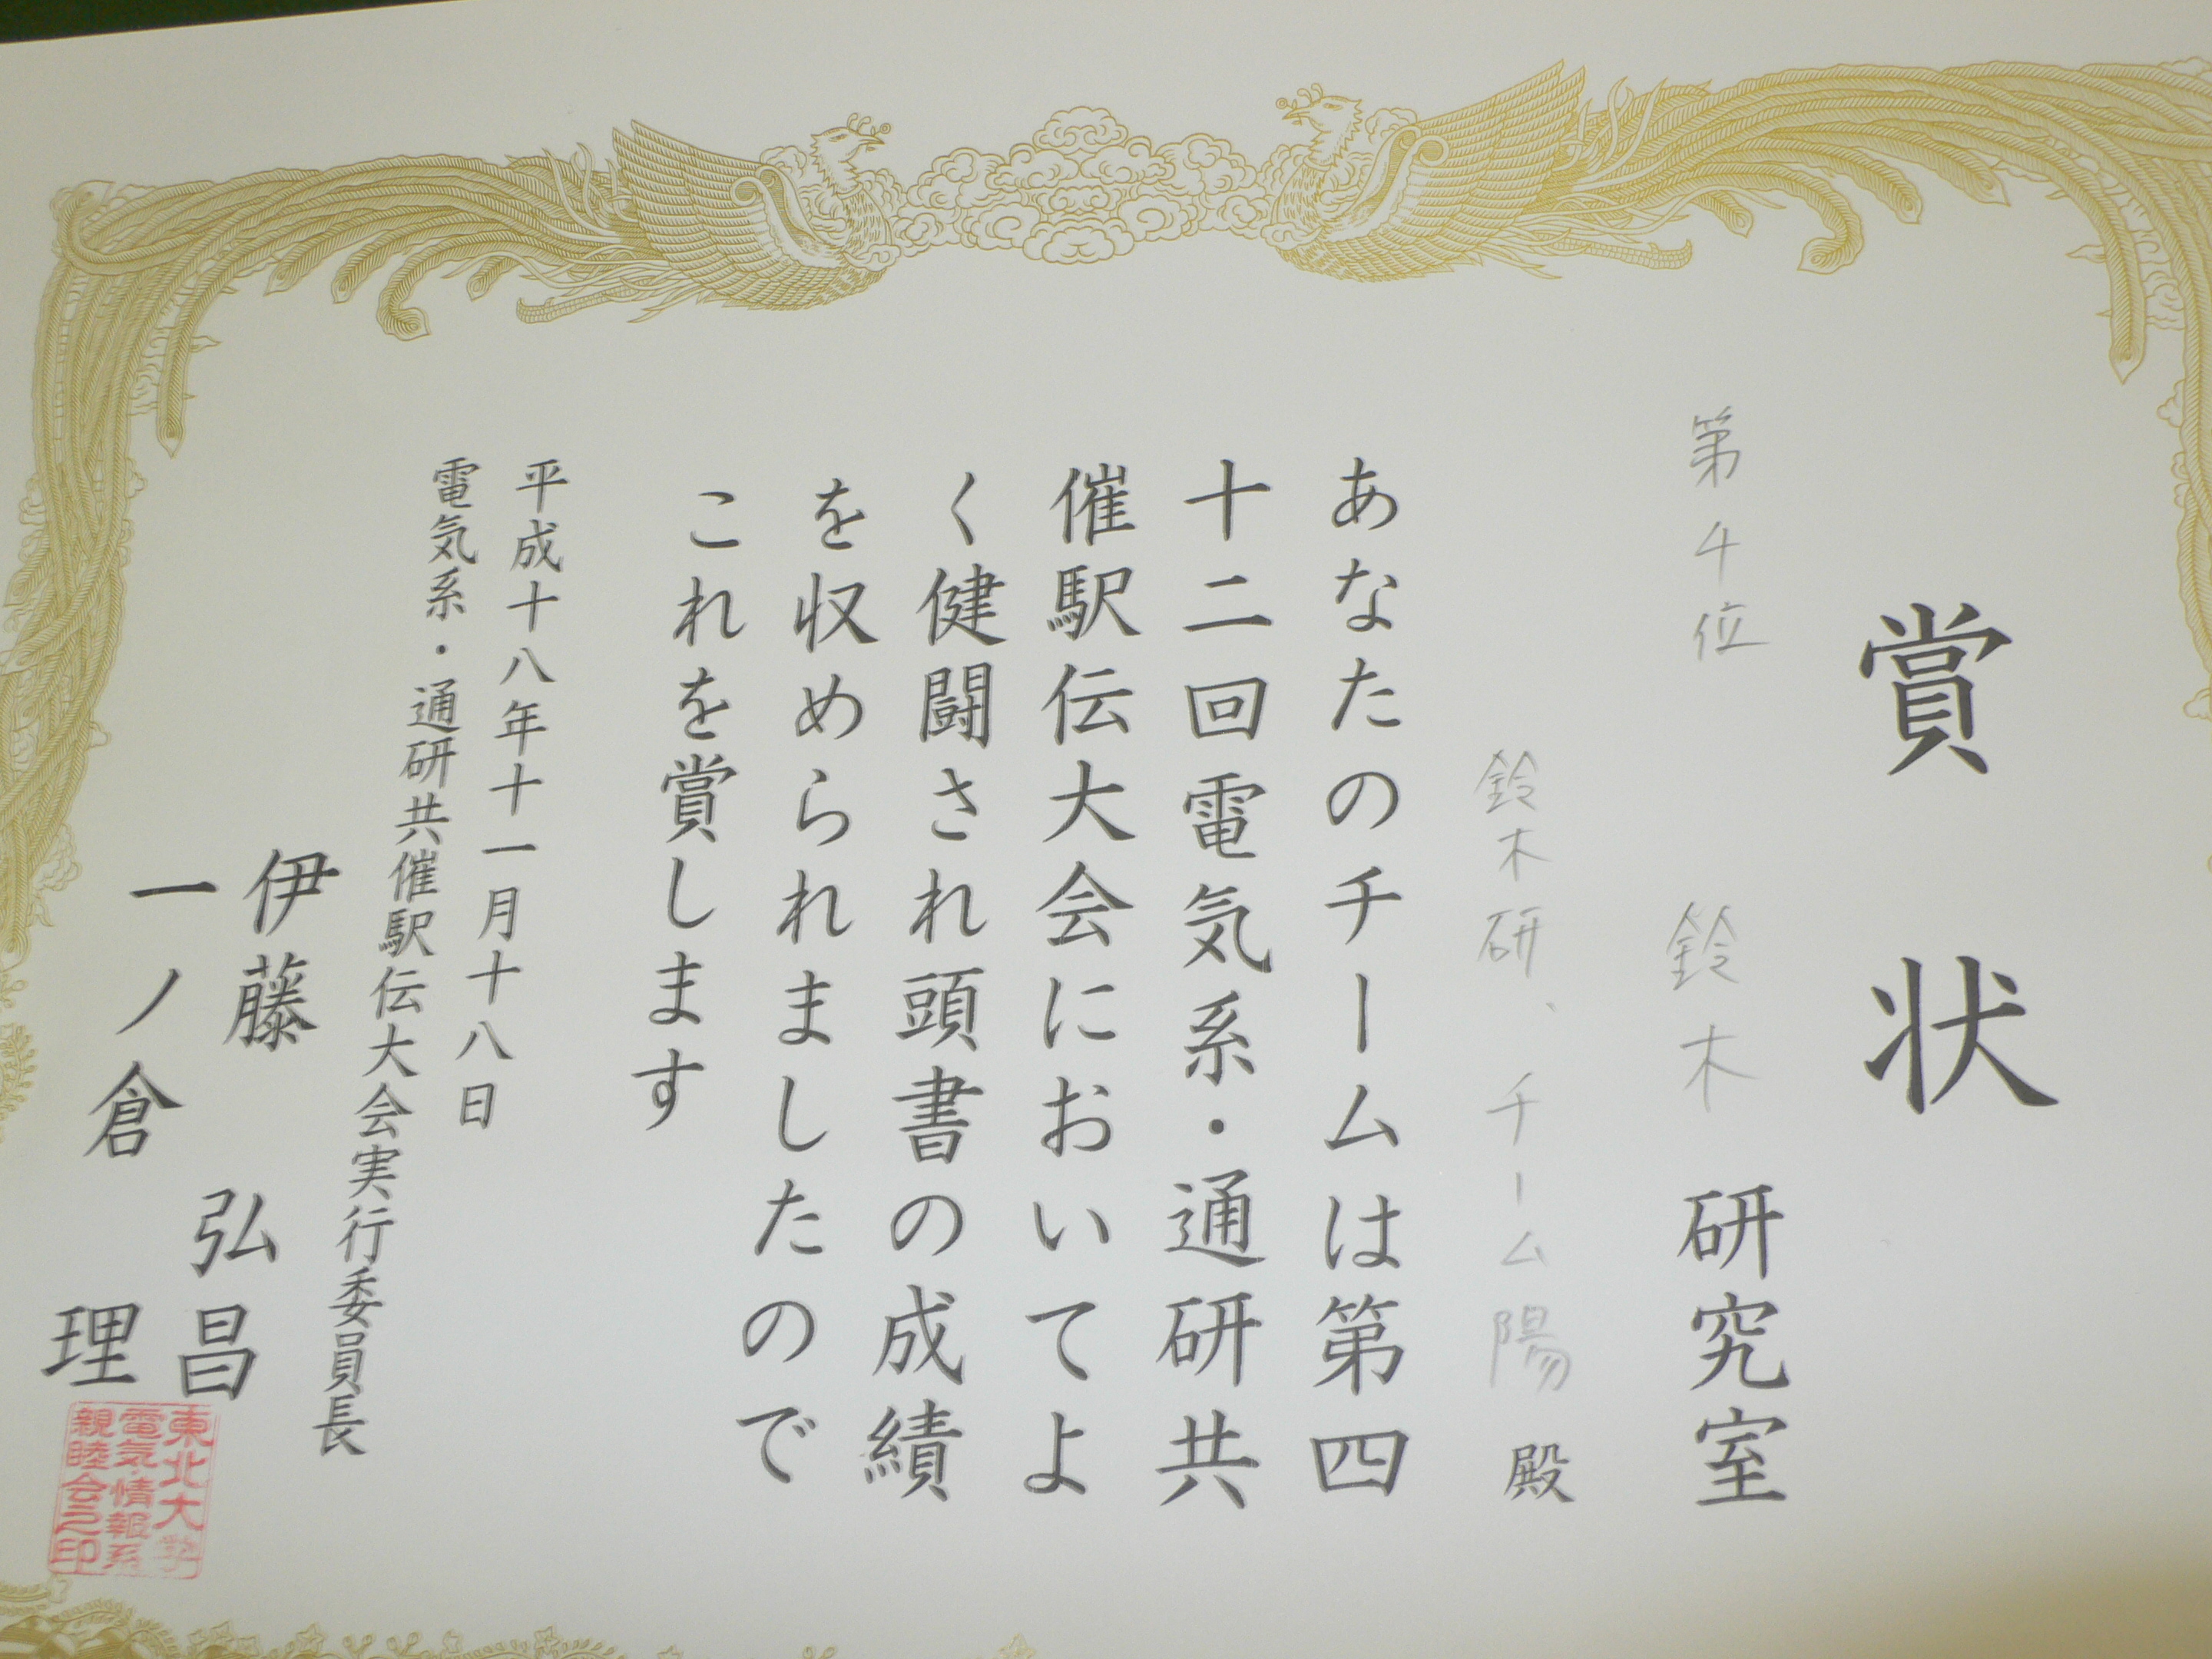 賞状
第4位 鈴木研究室
鈴木研、チーム陽殿
あなたのチームは第四
十二回電気系・通研共
催駅伝大会においてよ
く健闘され頭書の成績
を収められましたので
これを賞します
平成十八年十一月十八日
電気系・通研共催駅伝大会実行委員長
伊藤弘昌
一ノ倉理
東北大学
電気・情報系
親睦会之印